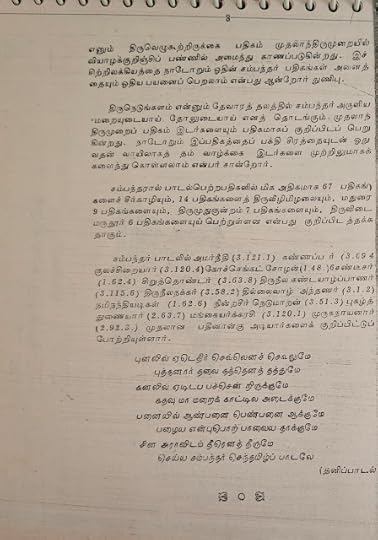 3
எனும் திருவெழுகூற்றிருக்கை பதிகம் முதலாந்திருமுறையில்
வியாழக்குறிஞ்சிப் பண்ணில் அமைந்து காணப்படுகின்றது. இச்
சிற்றிலக்கியத்தை நாடோறும் ஓதின் சம்பந்தர் பதிகங்கள் அனைத்
தையும் ஓதிய பயனைப் பெறலாம் என்பது ஆன்றோர் துணிபு.
திருநெடுங்களம் என்னும் தேவாரத் தலத்தில் சம்பந்தர் அருளிய
"மறையுடையாய் தோலுடையாய் எனத் தொடங்கும் முதலாந்
திருமுறைப் பதிகம் இடர்களையும் பதிகமாகக் குறிப்பிடப் பெறு
கின்றது. நாடோறும் இப்பதிகத்தைப் பக்தி சிரத்தையுடன் ஓது
வதன் வாயிலாகத் தம் வாழ்க்கை இடர்களை முற்றிலுமாகக்
களைந்து கொள்ளலாம் என்பர் சான்றோர்.
சம்பந்தரால் பாடல்பெற்றபதிகளில் மிக அதிகமாக 67 பதிகங்
களைச் சீர்காழியும், 14 பதிகளைத் திருவீழிமிழலையும், மதுரை
9 பதிகங்களையும், திருமுதுகுன்றம் 7 பதிகங்களையும், திருவிடை
மருதூர் 6 பதிகங்களையுப் பெற்றுள்ளன என்பது குறிப்பிடத்தக்க
தாகும்.
சம்பந்தர் பாடலில் அமர்நீதி (3.121.1) கண்ணப்பர் (3.69.4
குலச்சிறையார் (3.120.4)கோச்செங்கட் சோழன்(1.48.)6சண்டீசர்
(1.62.4) சிறுத்தொண்டர் (3.63.8) திருநீல கண்டயாழ்ப்பாணர்
(3.115.6) திருநீலநக்கர் (3.58.2) தில்லைவாழ் அந்தணர் (3.1.2)
நமிநந்தியடிகள் (1.62.6) நின்றசீர் நெடுமாறன் (3.51.3) புகழ்த்
துணையார் (2.63.7) மங்கையர்க்கரசி (3.120.1) முருகநாயனார்
(2.92.3.) முதலான பதினான்கு அடியார்களைக் குறிப்பிட்டுப்
போற்றியுள்ளார்.
புனலில் ஏடெதிர் செல்லெனச் செலுமே
புத்தனார் தலை தத்தெனத் தத்துமே
கனலில் ஏடிடப் பச்சென றிருக்குமே
கதவு மா மறைக் காட்டில அடைக்குமே
பனையில் ஆண்பனை பெண்பனை ஆக்குமே
பழைய என்புபொற் பாவைய தாக்குமே
சிவ அராவிடம் தீரெனத் தீருமே
செய்ய சம்பந்தர் செந்தமிழ்ப் பாடலே
(தனிப்பாடல்